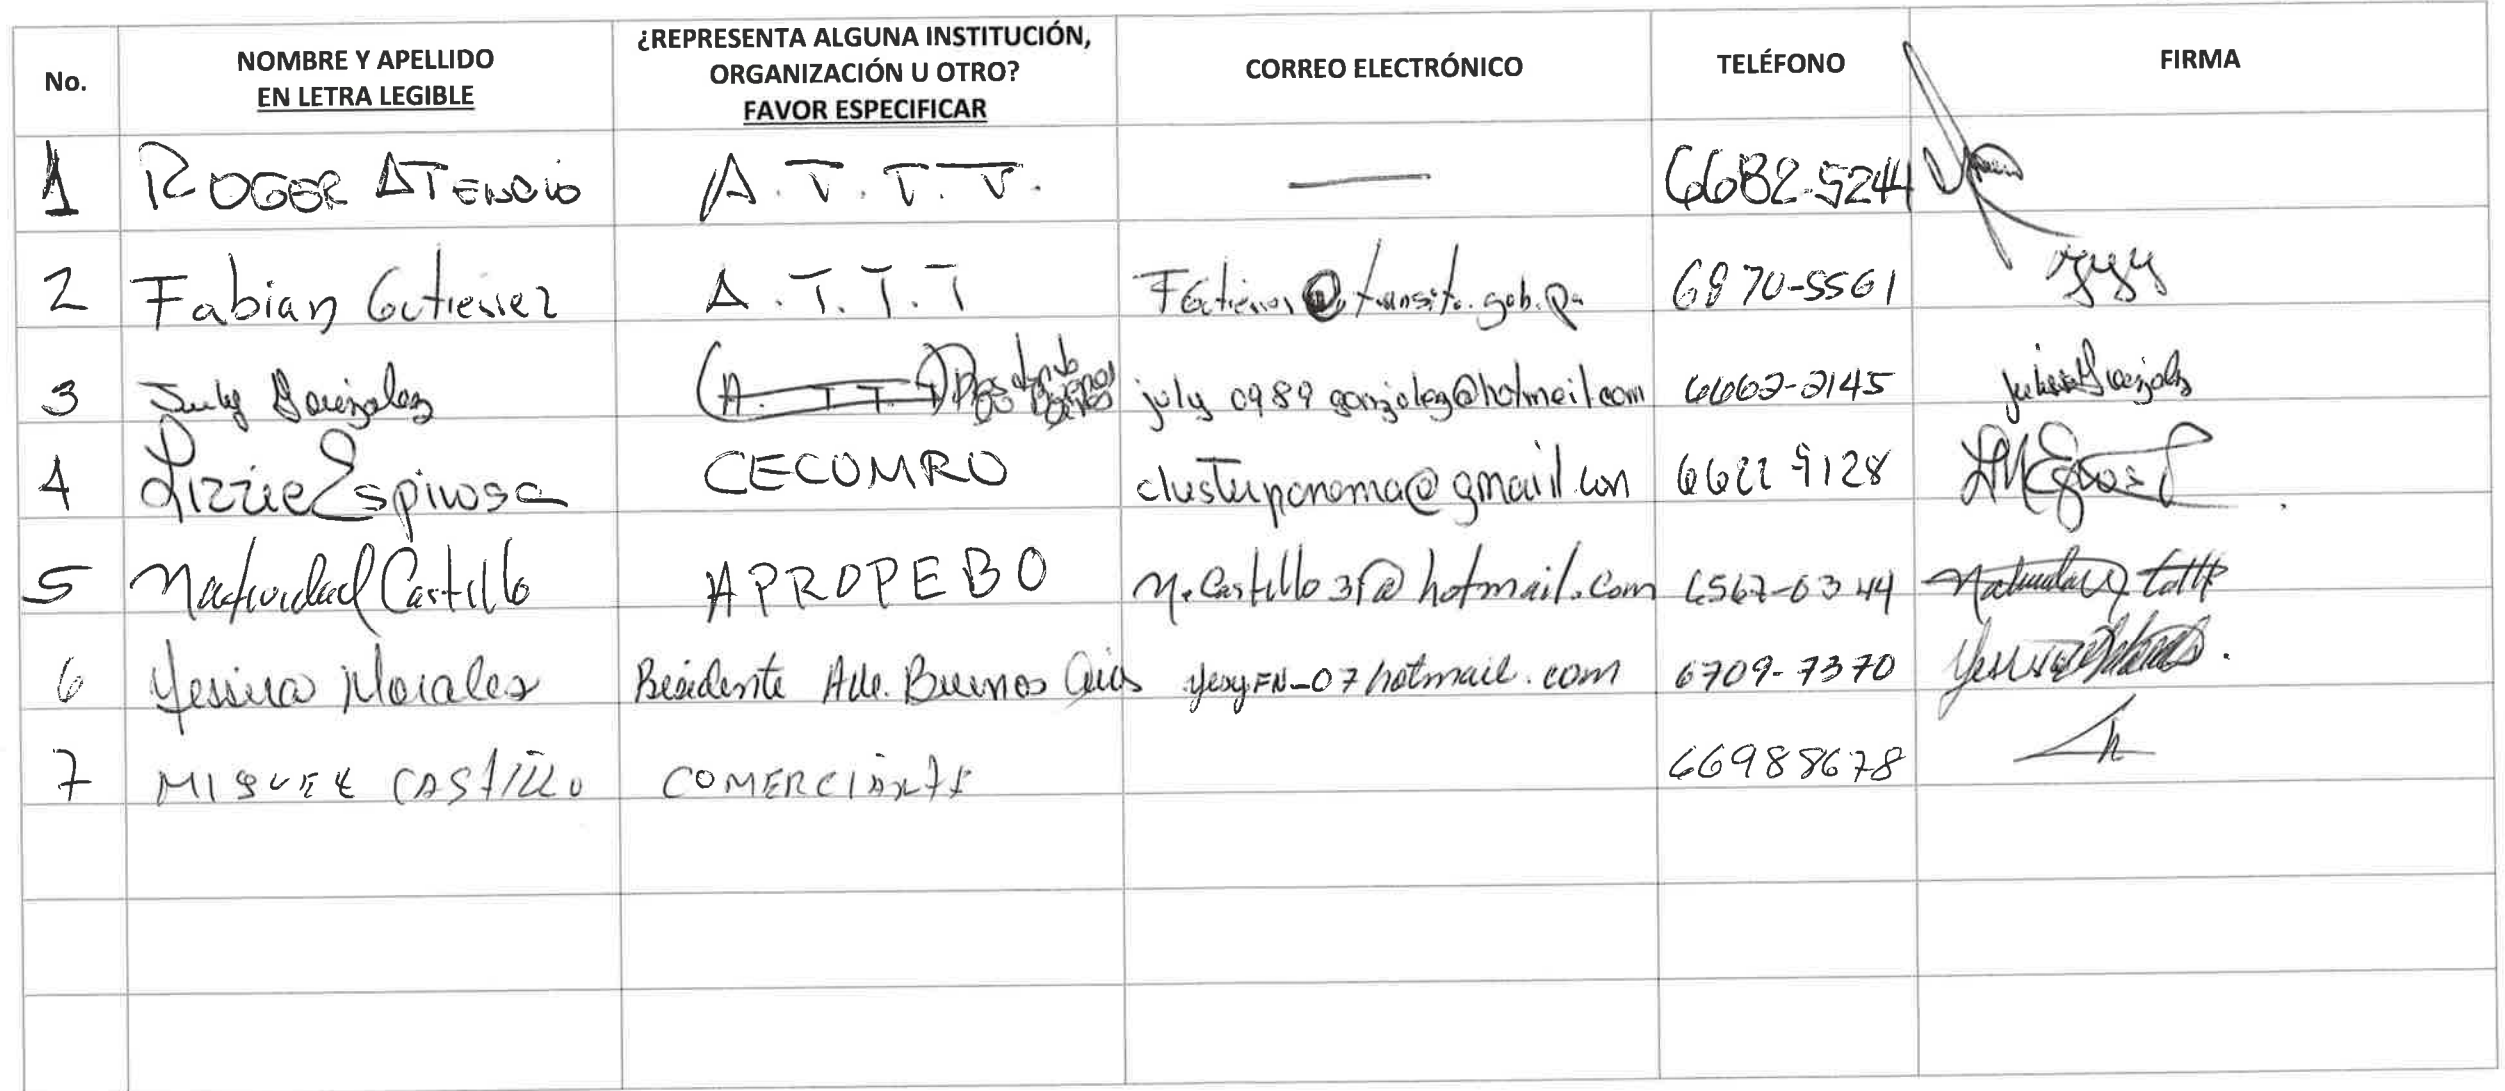 No.
NOMBRE Y APELLIDO
EN LETRA LEGIBLE
¿REPRESENTA ALGUNA INSTITUCIÓN,
ORGANIZACIÓN U OTRO?
FAVOR ESPECIFICAR
CORREO ELECTRÓNICO
TELÉFONO
FIRMA
1 ROGER ATENCIO A.T.T.T. — 6682-5244
2 Fabian Gutierrez A.T.T.T 6970-5561
3 July González july0989gonzalez@hotmail.com 6662-2145
4 Lizzie Espinosa CECOMRO clusterpanama@gmail.com 6622 9128
5 Natividad Castillo APROPEBO N.Castillo31@hotmail.com 6567-0344
6 Yesica Morales Residente Ave. Buenos Aires yesyFN-07hotmail.com 6709-7370
7 MIGUEL CASTILLO COMERCIANTE 66988678